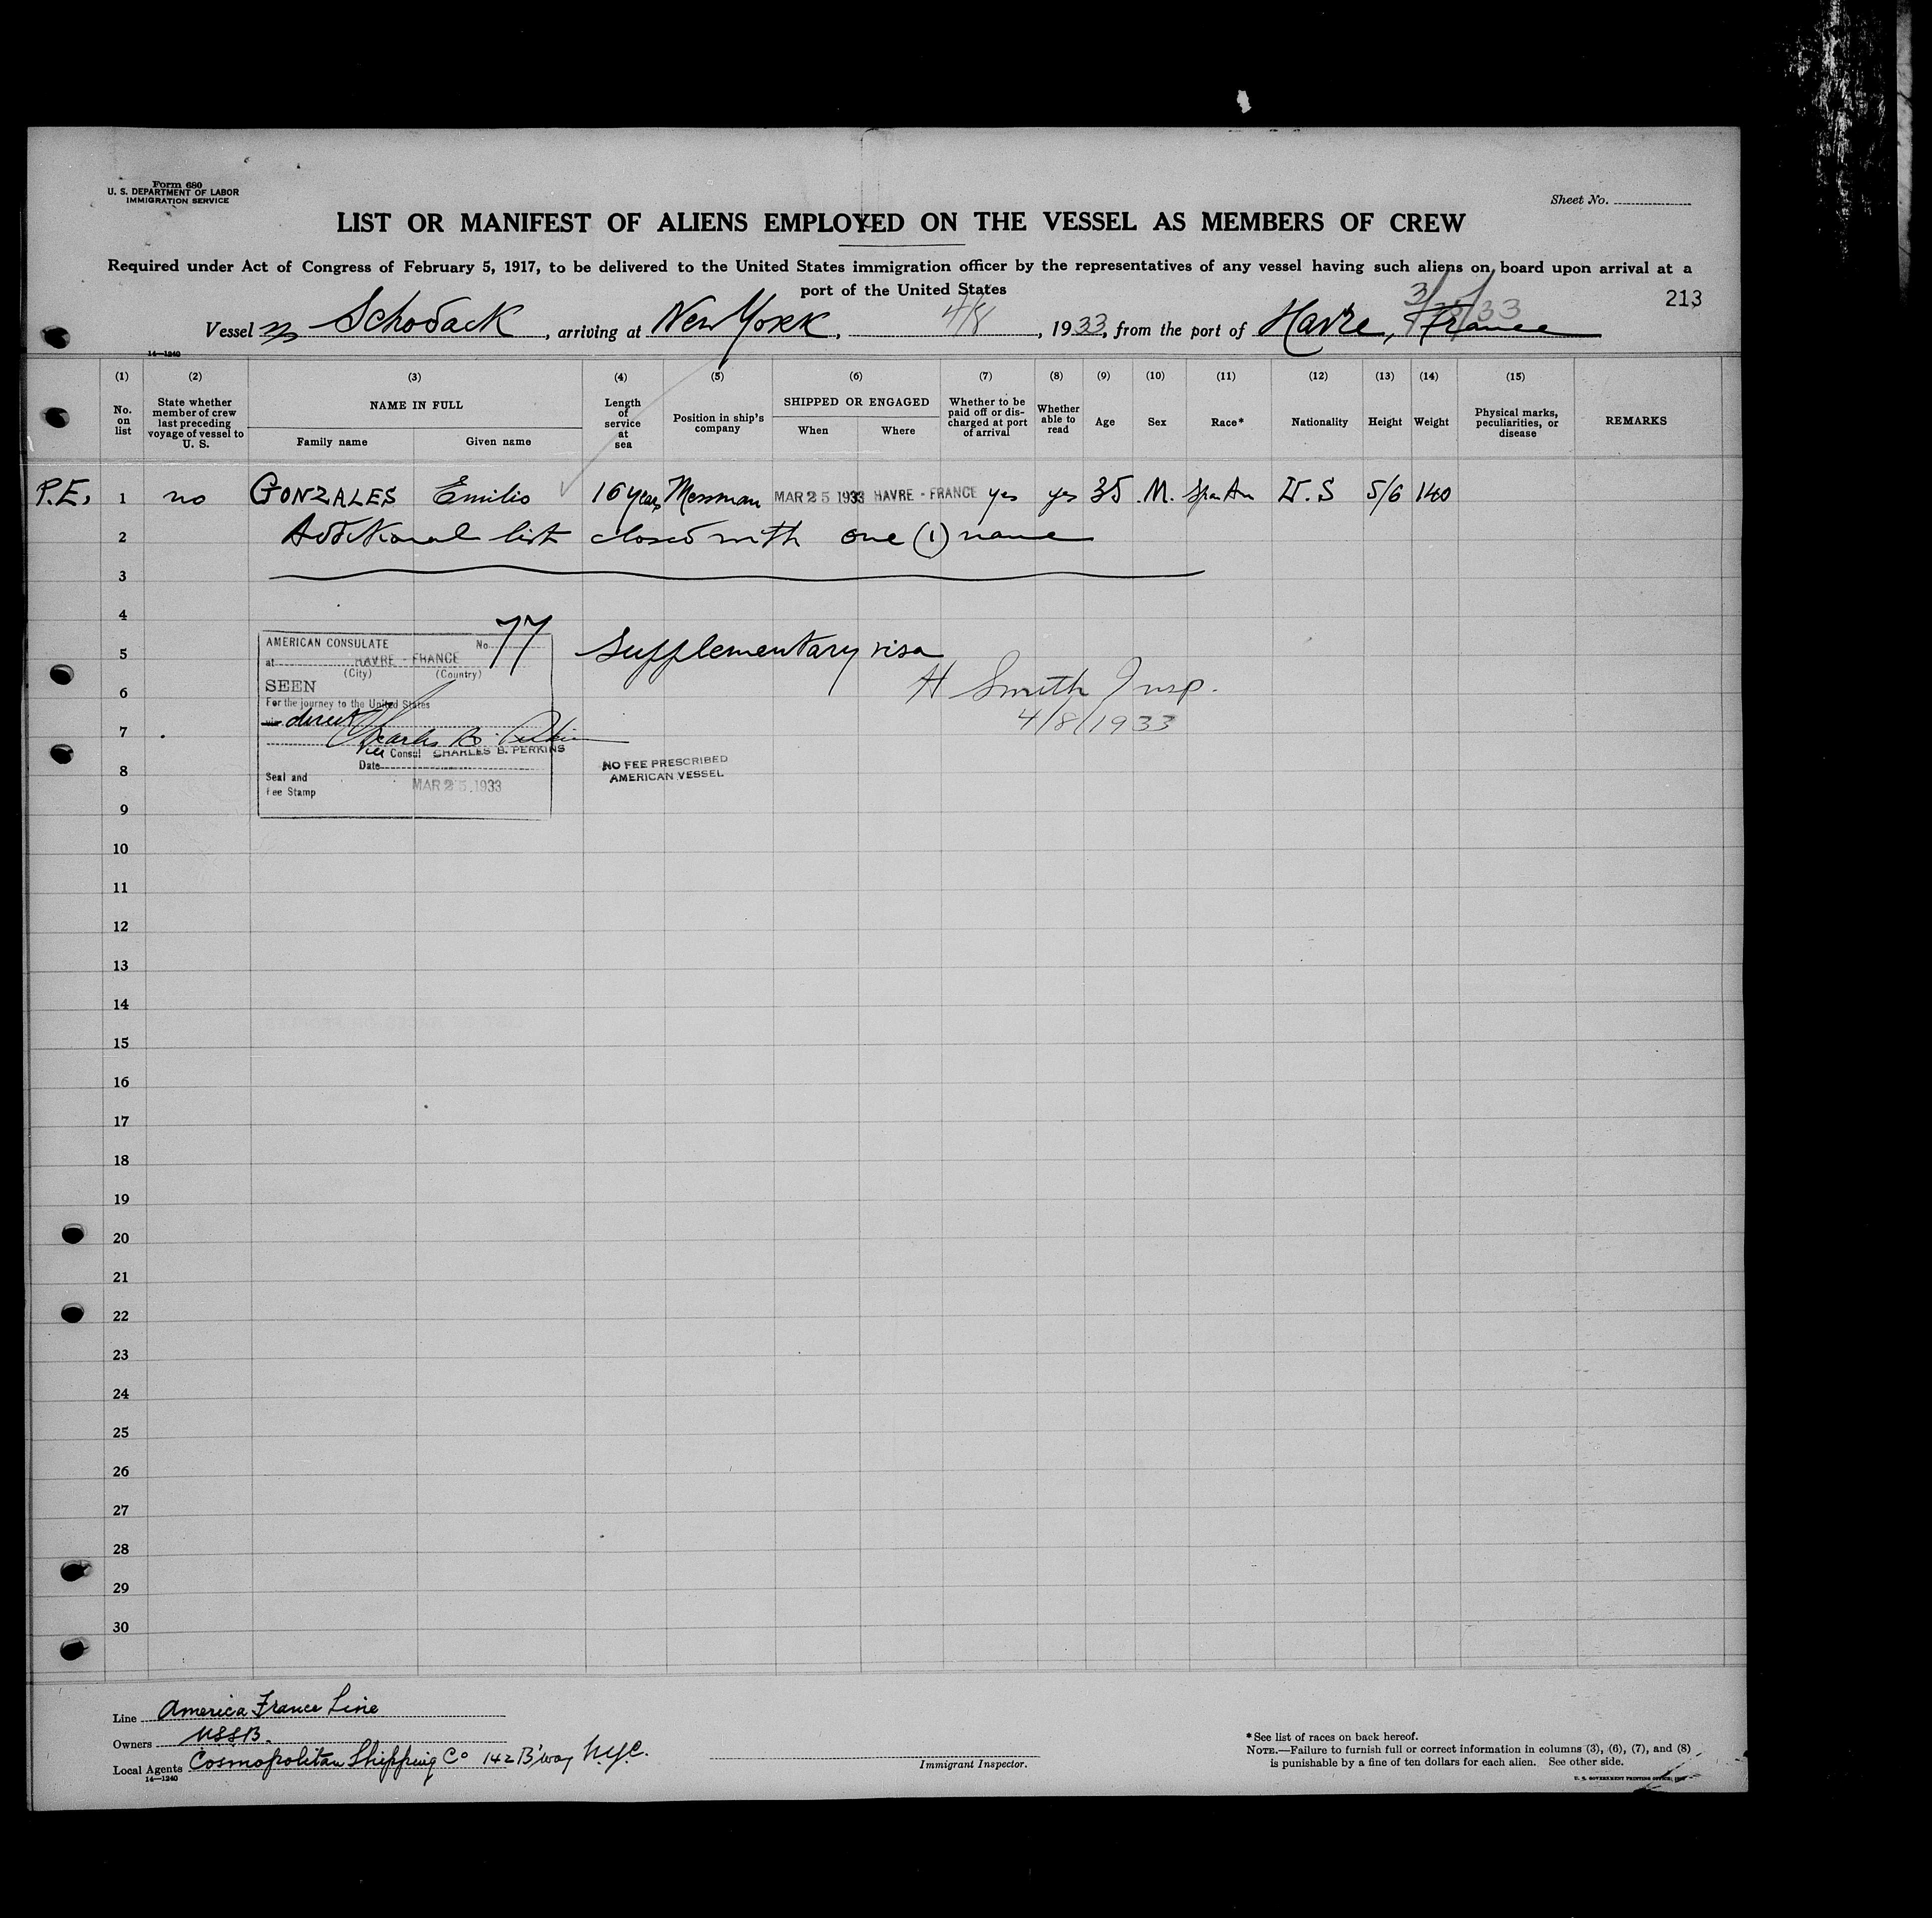 Form 680
U. S. DEPARTMENT OF LABOR
IMMIGRATION SERVICE
Sheet No.
LIST OR MANIFEST OF ALIENS EMPLOYED ON THE VESSEL AS MEMBERS OF CREW
Required under Act of Congress of February 5, 1917, to be delivered to the United States immigration officer by the representatives of any vessel having such aliens on board upon arrival at a
port of the United States
213
3/25/33
Vessel Schodack, arriving at New York, 4/8, 1933, from the port of Havre, France
14—1240
(1) (2) (3) (4) (5) (6) (7) (8) (9) (10) (11) (12) (13) (14) (15)
No. on list
State whether member of crew last preceding voyage of vessel to U. S.
NAME IN FULL
Family name Given name
Length of service at sea
Position in ship's company
SHIPPED OR ENGAGED
When Where
Whether to be paid off or discharged at port of arrival
Whether able to read
Age
Sex
Race*
Nationality
Height
Weight
Physical marks, peculiarities, or disease
REMARKS
P.E. 1 no GONZALES Emilio 16 years Messman MAR 25 1933 HAVRE - FRANCE yes yes 35 M. Span Am U.S 5/6 140
2 Additional list closed with one (1) name
3
4
5
6
7
8
9
10
11
12
13
14
15
16
17
18
19
20
21
22
23
24
25
26
27
28
29
30
AMERICAN CONSULATE No. 77
at HAVRE - FRANCE
(City) (Country)
SEEN
For the journey to the United States
via direct
Charles B. Perkins
Vice Consul CHARLES B. PERKINS
Date
Seal and
Fee Stamp
MAR 25 1933
Supplementary visa
H Smith Insp.
4/8/1933
NO FEE PRESCRIBED
AMERICAN VESSEL
Line America France Line
Owners USSB.
Local Agents Cosmopolitan Shipping Co 142 B'way N.Y.C.
14—1240
Immigrant Inspector.
*See list of races on back hereof.
NOTE.—Failure to furnish full or correct information in columns (3), (6), (7), and (8)
is punishable by a fine of ten dollars for each alien. See other side.
U. S. GOVERNMENT PRINTING OFFICE: